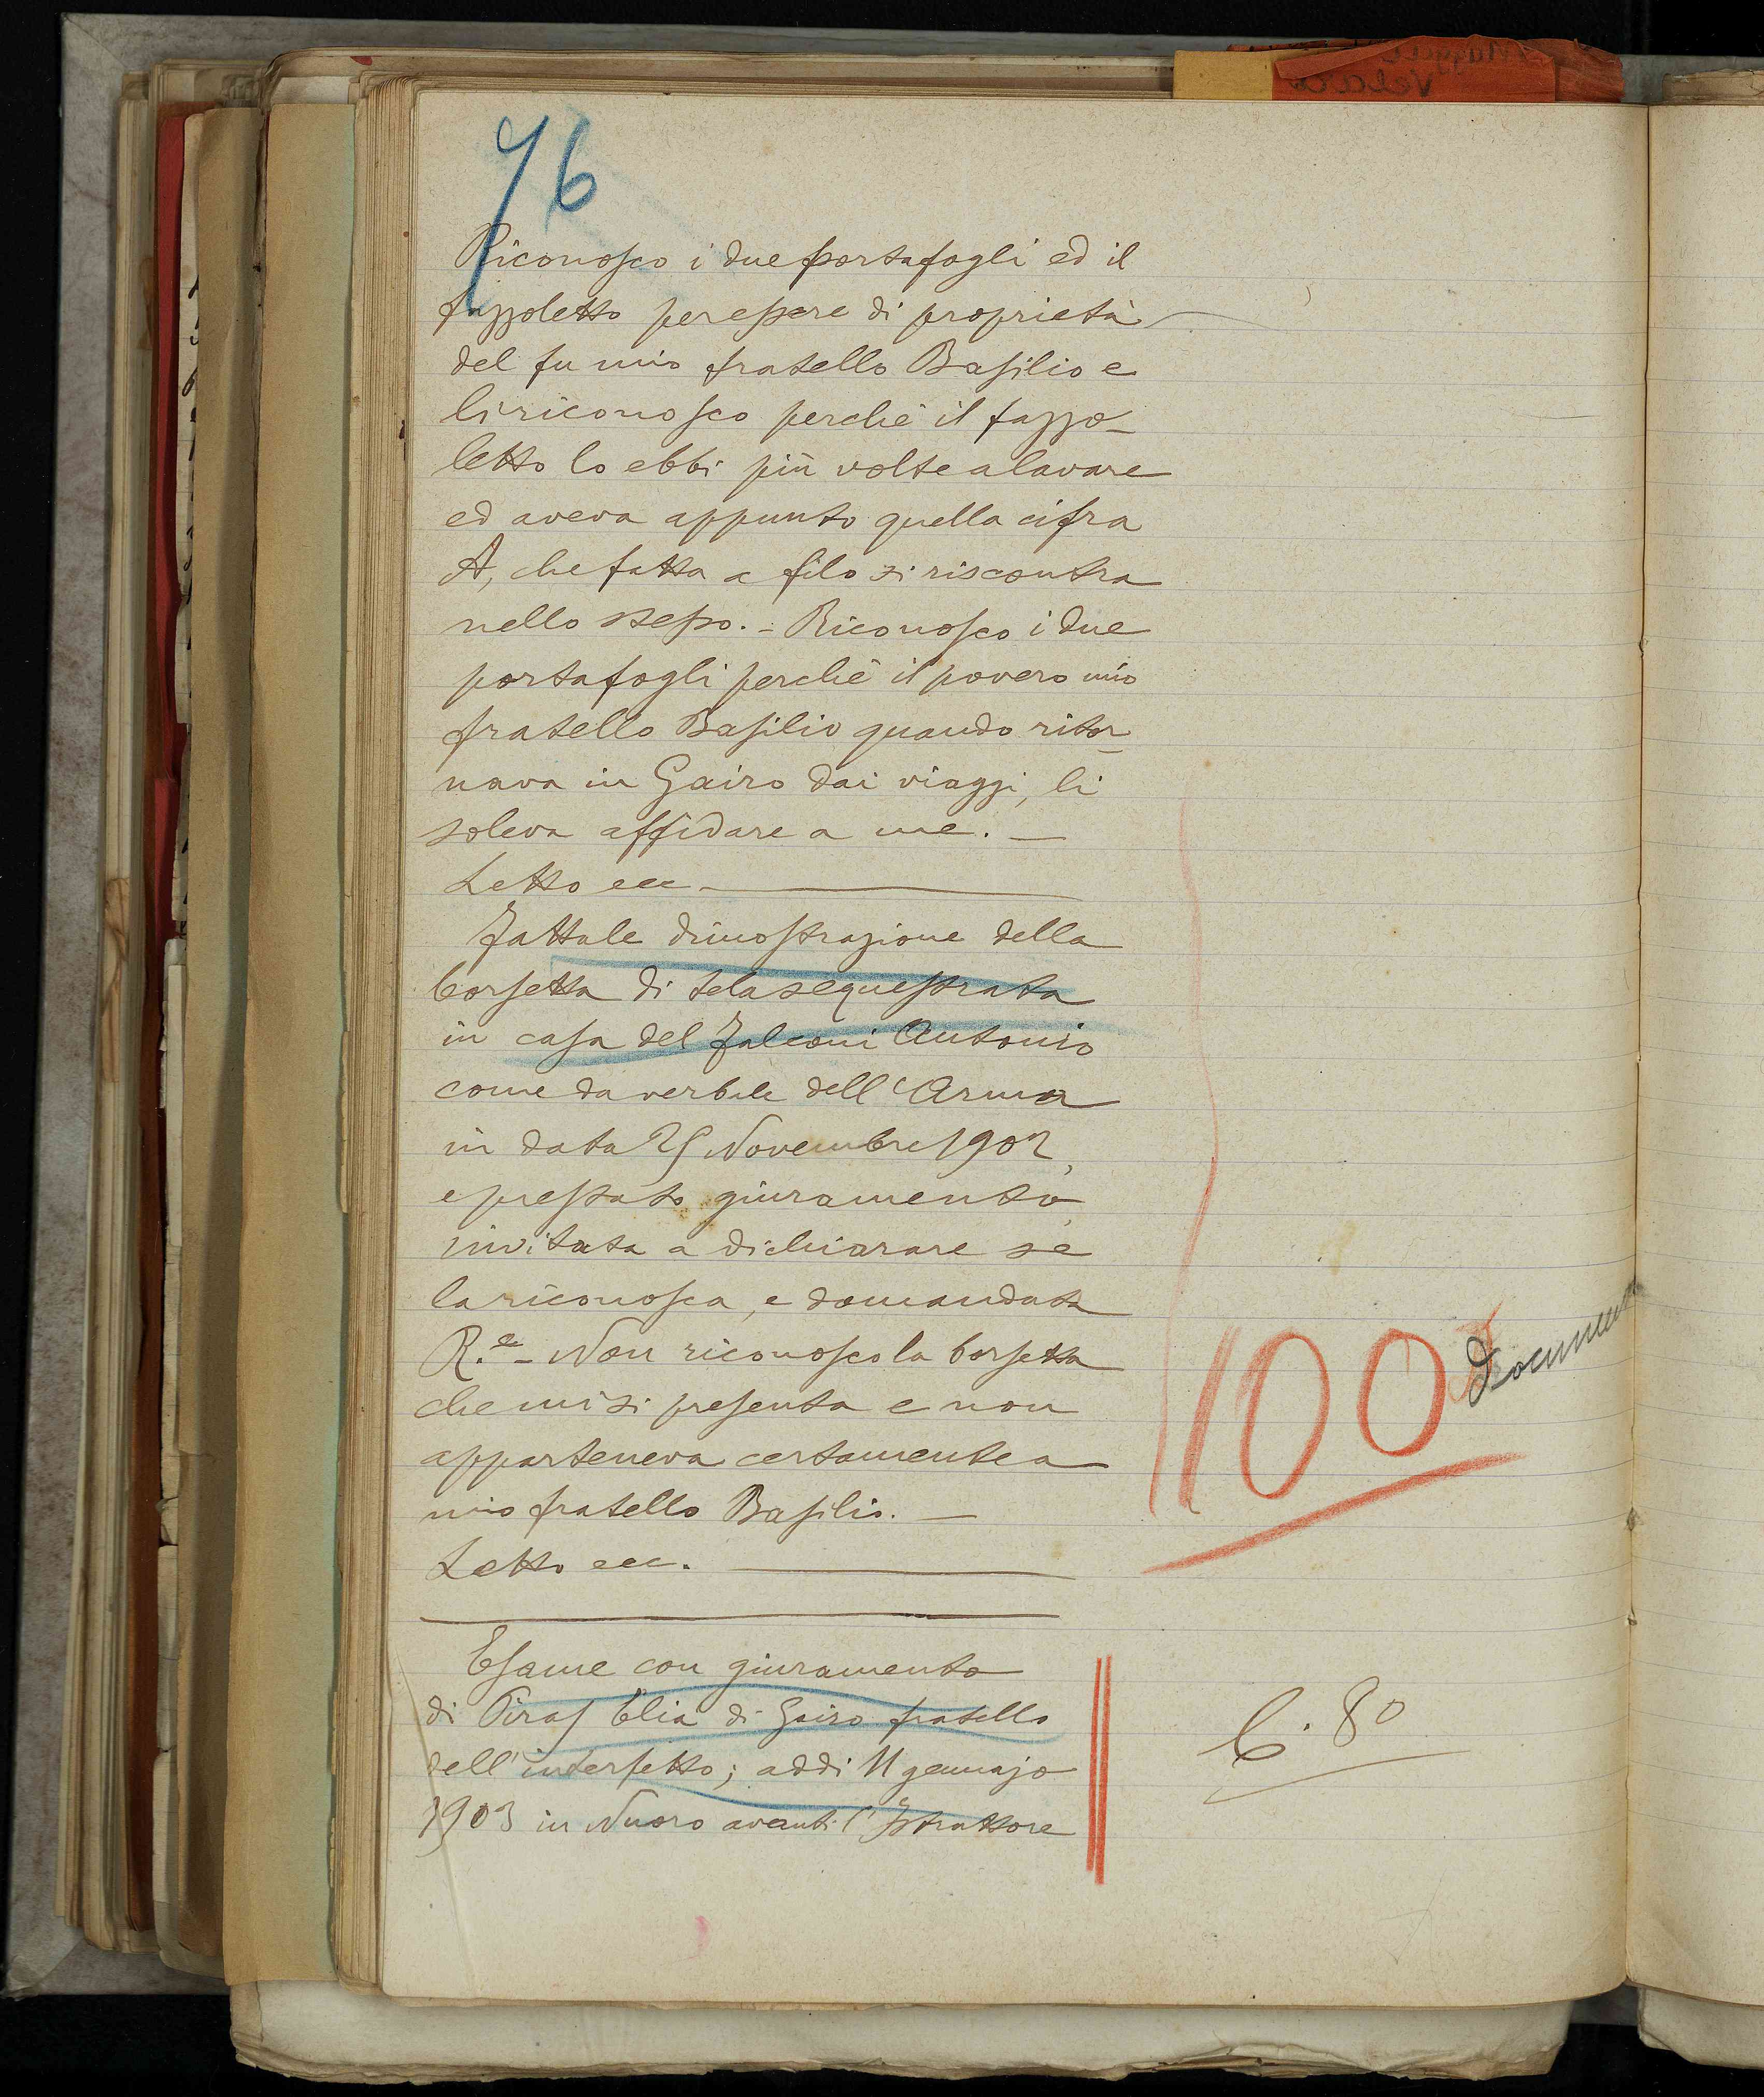 76
Riconosco i due portafogli ed il
fazzoletto per essere di proprietà
del fu mio fratello Basilio e
li riconosco perchè il fazzo-
letto lo ebbi più volte a lavare
ed aveva appunto quella cifra
A, che fatta a filo si riscontra
nello stesso. - Riconosco i due
portafogli perchè il povero mio
fratello Basilio quando ritor-
nava in Gairo dai viaggi, li
soleva affidare a me. -
Letto ecc.
Fattale dimostrazione della
borsetta di tela sequestrata
in casa del Falconi Antonio
come da verbale dell'Arma
in data Novembre 1902,
e prestato giuramento,
invitata a dichiarare se
la riconosca, e domandata
R.e - Non riconosco la borsetta
che mi si presenta e non
apparteneva certamente a
mio fratello Basilio. -
Letto ecc.
100
Esame con giuramento
di Piras Elia di Gairo fratello
dell'interfetto; addì 11 gennajo
1903 in Nuoro avanti l'Istruttore
80